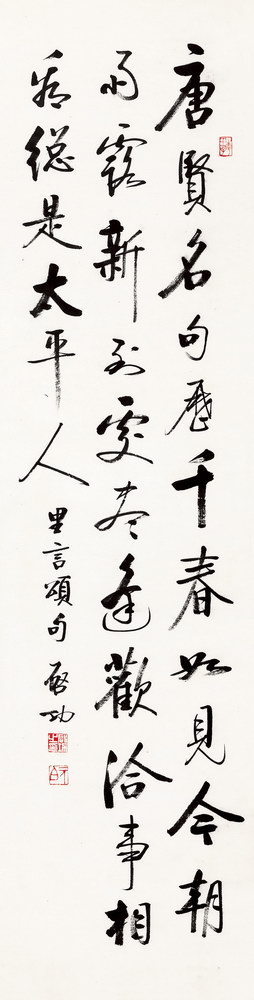 唐賢名句歷千春如見今朝
雨露新到處盡逢歡洽事相
看總是太平人
里言頌句 啟功